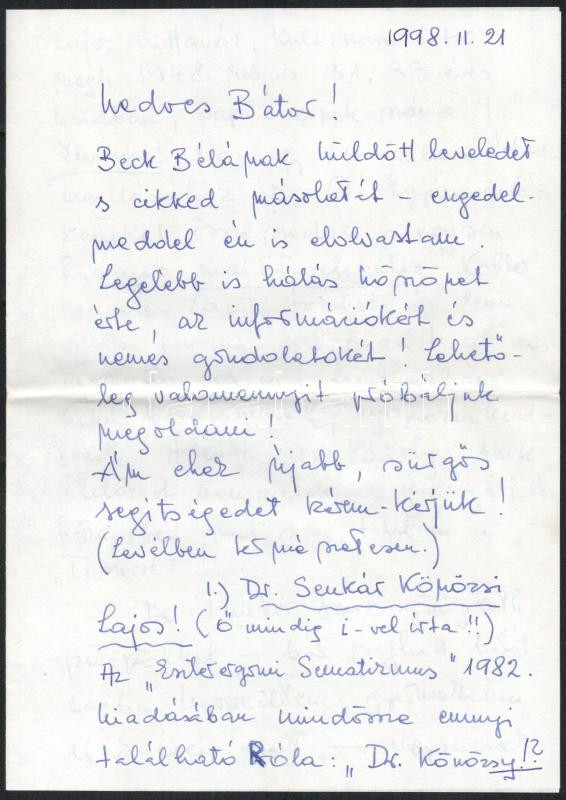 1998. 11. 21
Kedves Bátor!
Beck Bélának küldött leveledet
s cikked másolatát – engedel-
meddel én is elolvastam.
Legelébb is hálás köszönet
érte, az információkért és
nemes gondolatokért! Lehető-
leg valamennyit próbáljuk
megoldani!
Ám ehez újabb, sürgős
segítségedet kérem-kérjük!
(Levélben is részletesen.)
1.) Dr. Senkár Könözsi
Lajos! (Ő mindig i-vel írta!!)
Az „Esztergomi Sematizmus" 1982.
kiadásában mindössze ennyi
található Róla: „Dr. Könözsy!?